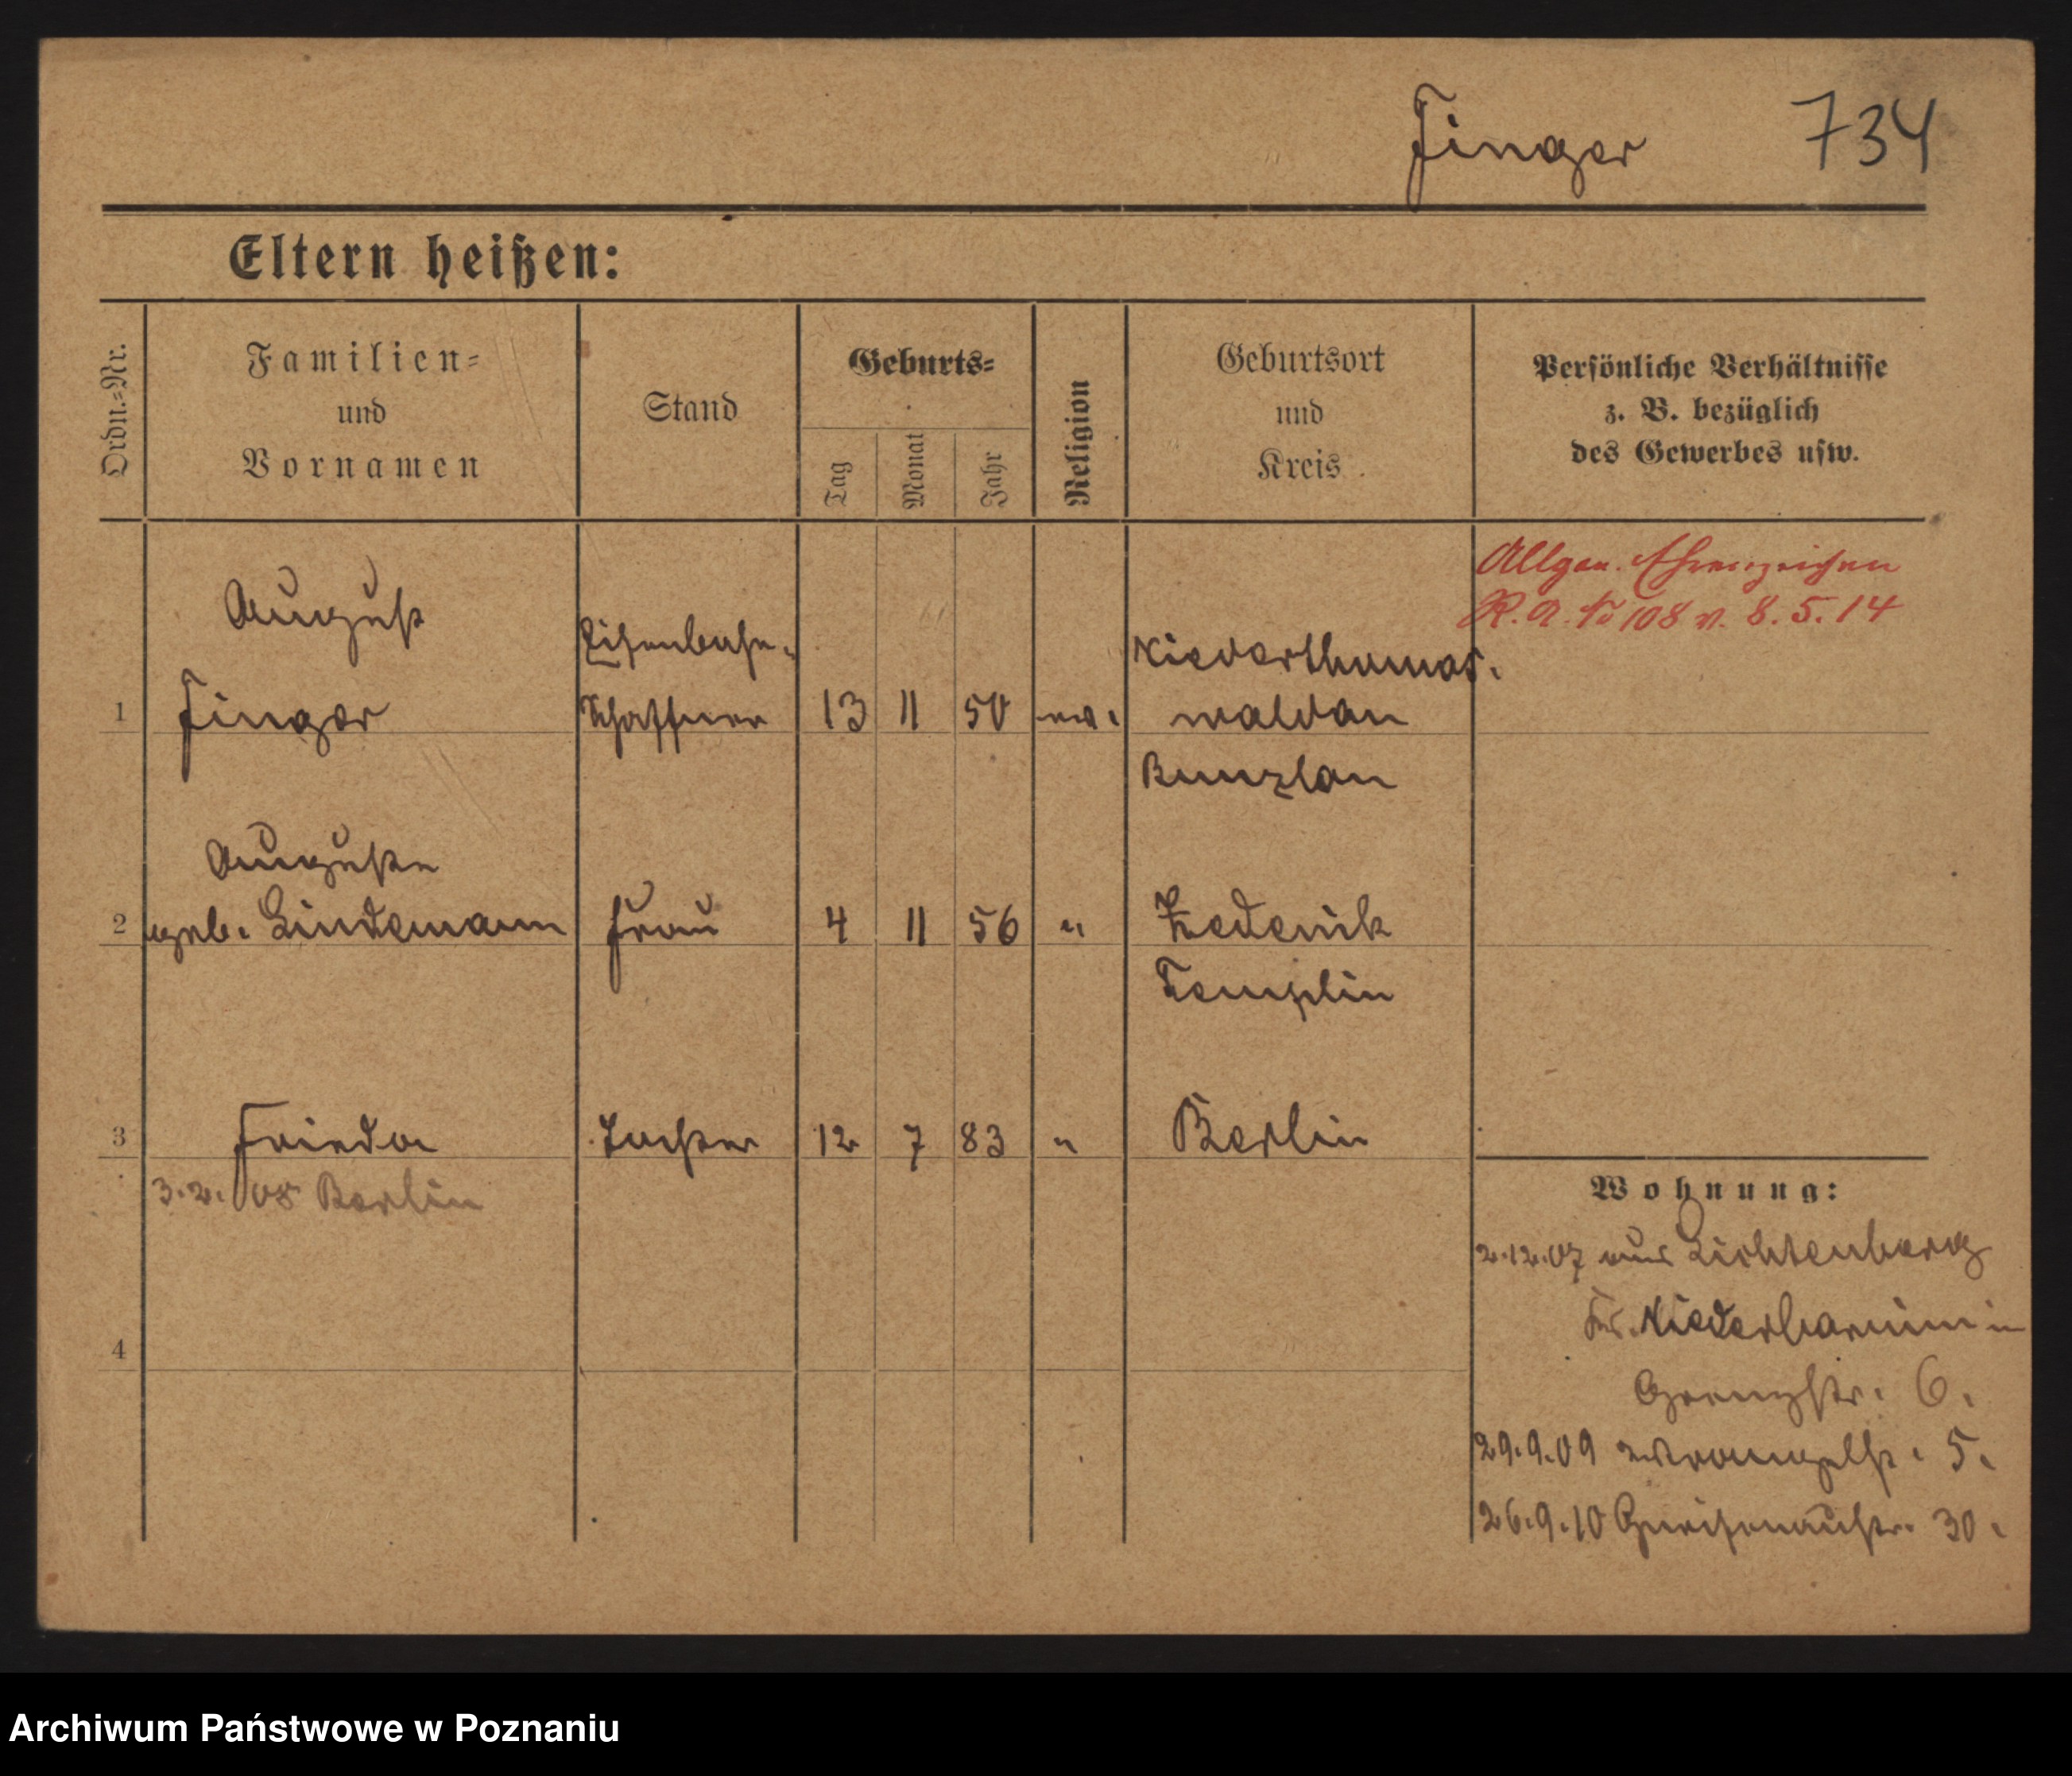 Finger 734
Eltern heißen:
Ordn.-Nr.
Familien-
und
Vornamen
Stand
Geburts-
Tag
Monat
Jahr
Religion
Geburtsort
und
Kreis
Persönliche Verhältnisse
z. B. bezüglich
des Gewerbes usw.
Allgem. Ehrenzeichen
R. A. No 108 v. 8. 5. 14
August
Eisenbahn-
Niederthomas-
1 Finger Schaffner 13 11 50 ev. waldau
Bunzlau
Auguste
2 geb. Lindemann Frau 4 11 56 " Zedenik
Templin
3 Frieda Tochter 12 7 83 " Berlin
3.2.08 Berlin
Wohnung:
2.12.07 aus Lichtenberg
Kr. Niederbarnim in
4
Grenzstr. 6.
29.9.09 Wrangelst. 5.
26.9.10 Gneisenaustr. 30.
Archiwum Państwowe w Poznaniu